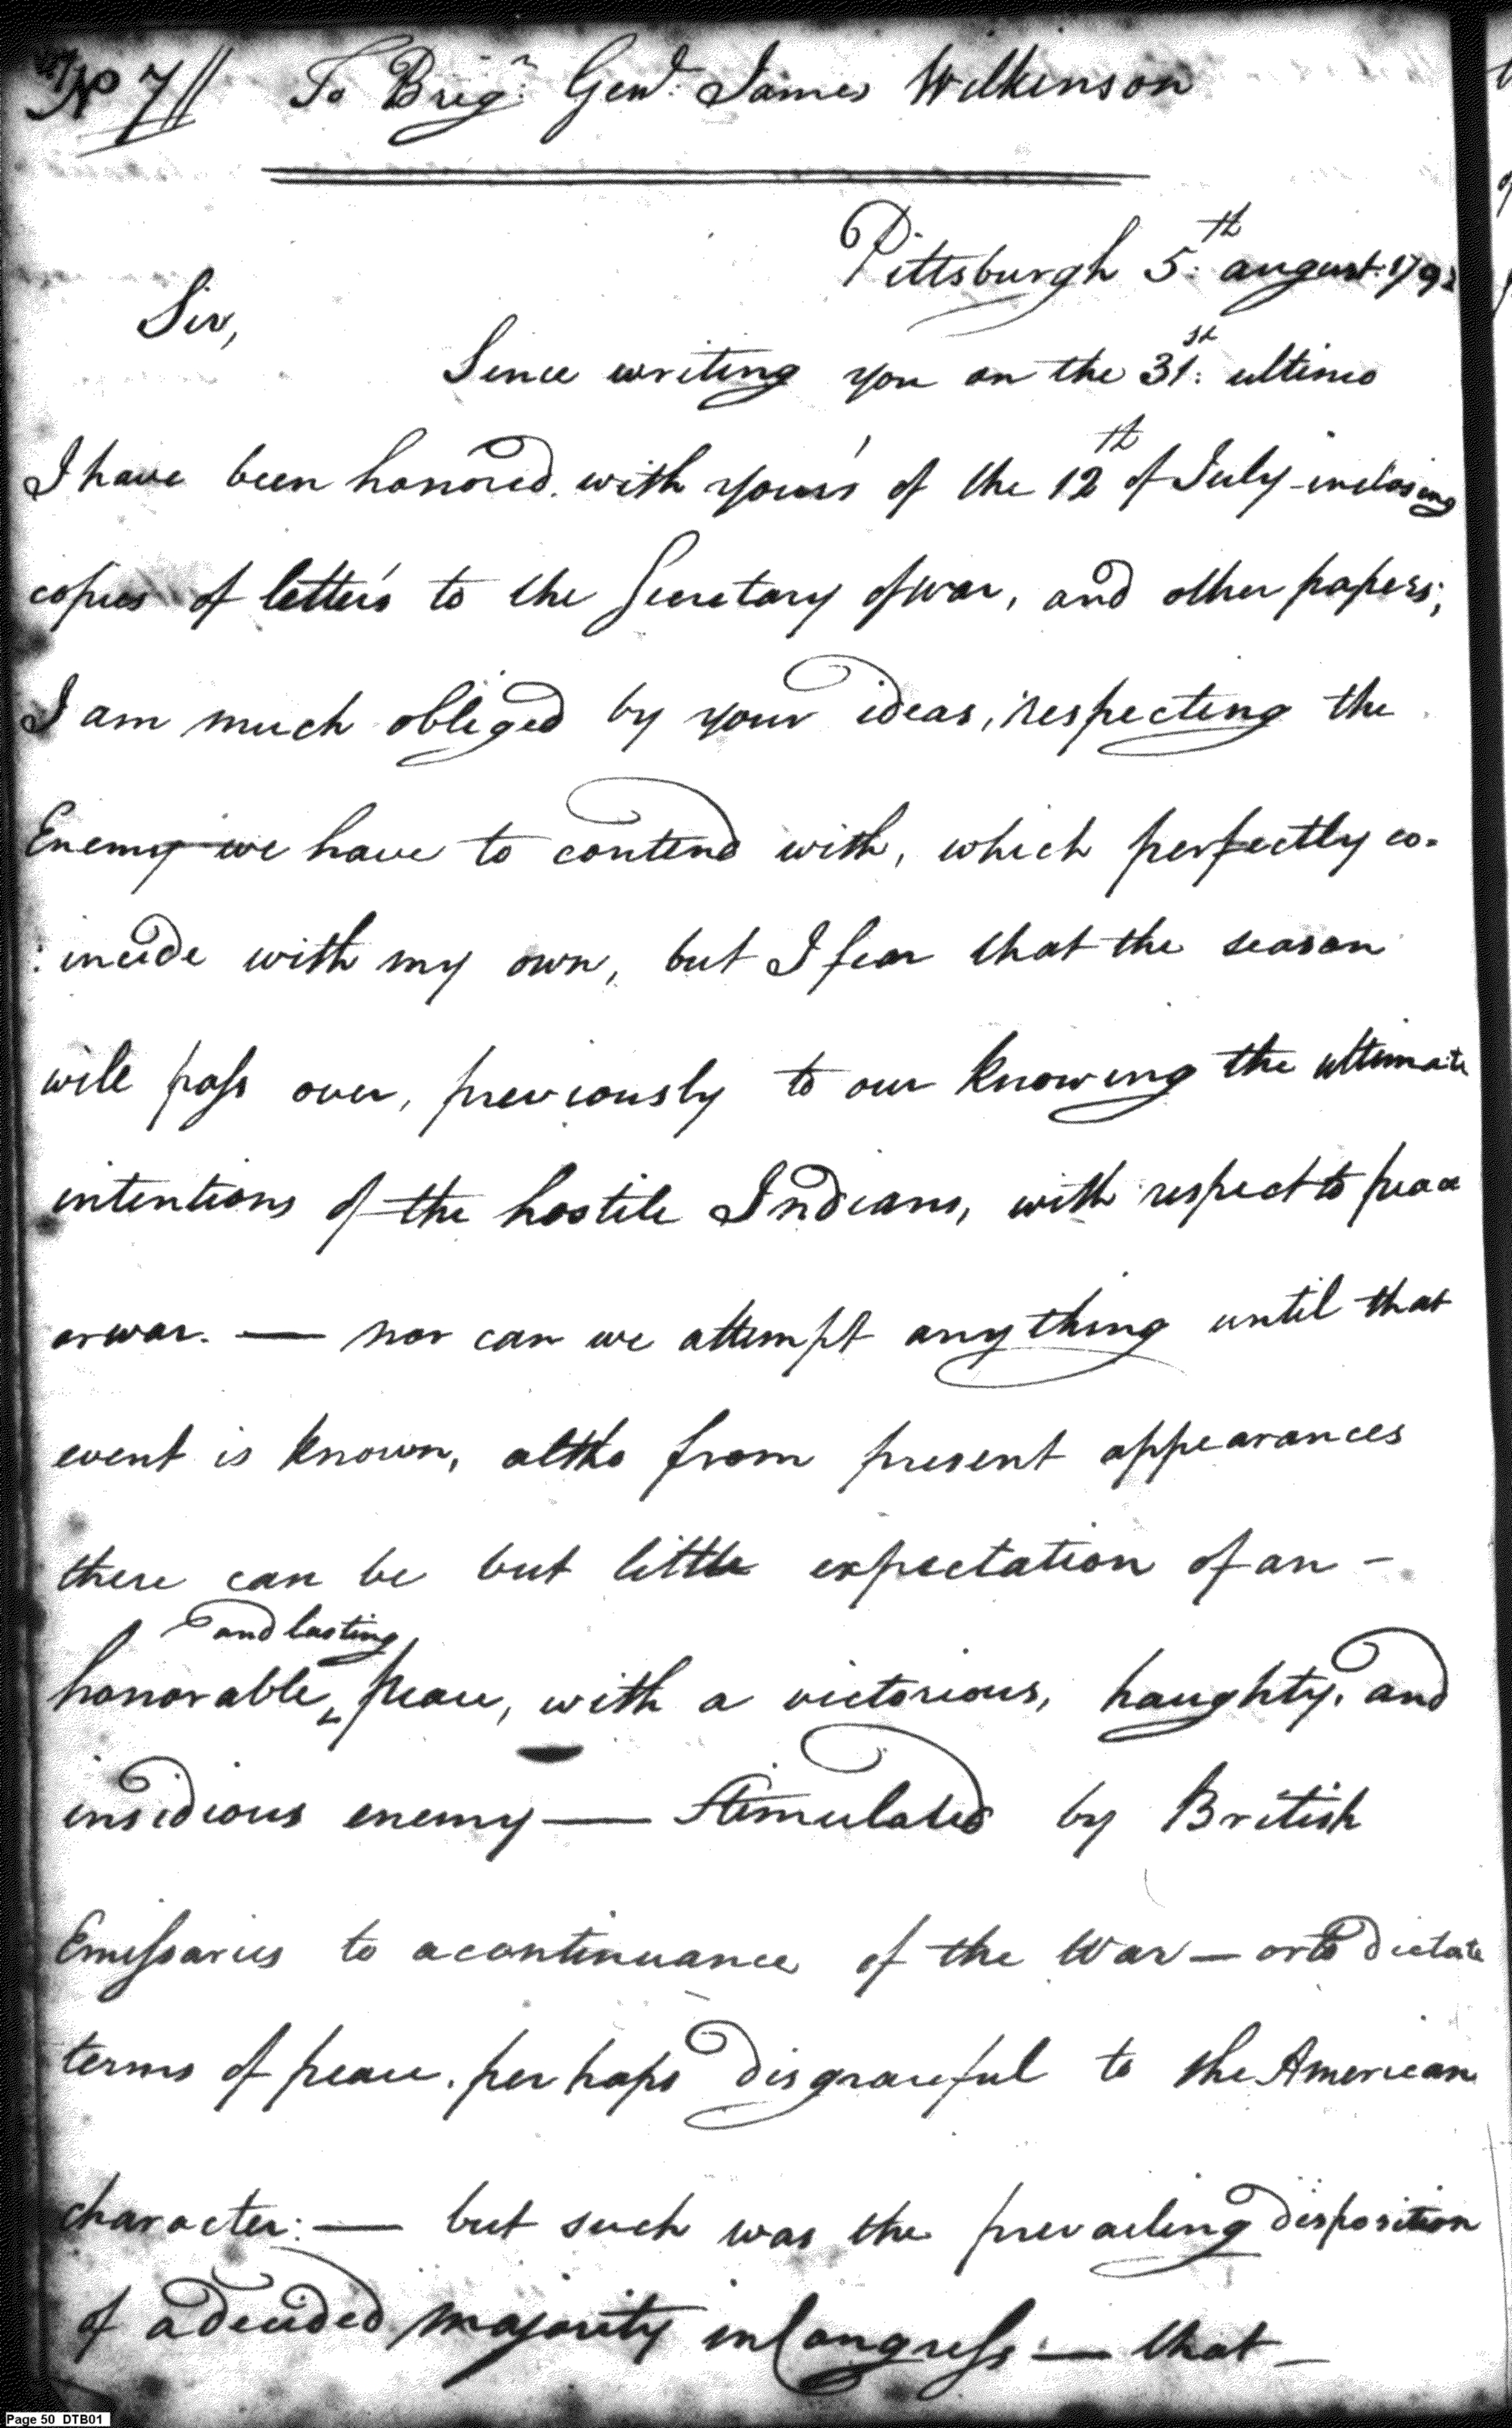 No 7// To Brigr. Genl. James Wilkinson
Pittsburgh 5th. august. 1792
Sir,
Since writing you on the 31st. ultimo
I have been honored. with your's of the 12th of July - inclosing
copies of letter's to the Secretary of war, and other papers;
I am much obliged by your ideas, respecting the
Enemy we have to contend with, which perfectly co-
:incide with my own, but I fear that the season
will pass over, previously to our knowing the ultimate
intentions of the hostile Indians, with respect to peace
or war. — nor can we attempt anything until that
event is known, altho from present appearances
there can be but little expectation of an -
and lasting
honorable peace, with a victorious, haughty, and
insidious enemy — Stimulated by British
Emissaries to a continuance of the War — or to dictate
terms of peace. perhaps disgraceful to the American
character: — but such was the prevailing disposition
of a decided majority in Congress — that —
Page 50 DTB01